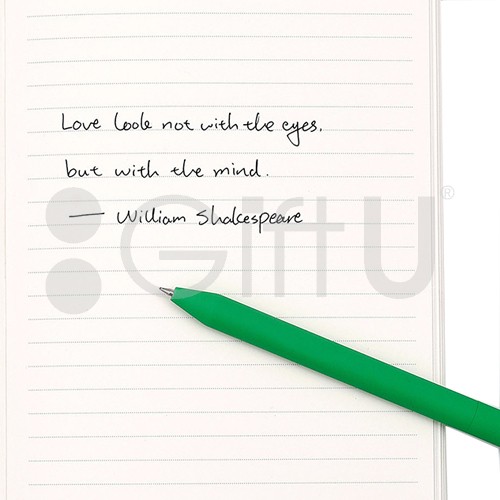 Love look not with the eyes.
but with the mind.
— William Shakespeare
GiftU®